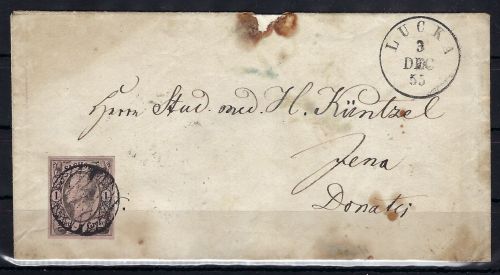 LUCKA
3
DEC
55
Herrn Stud. med. H. Küntzel
Jena
Donatei
1 1